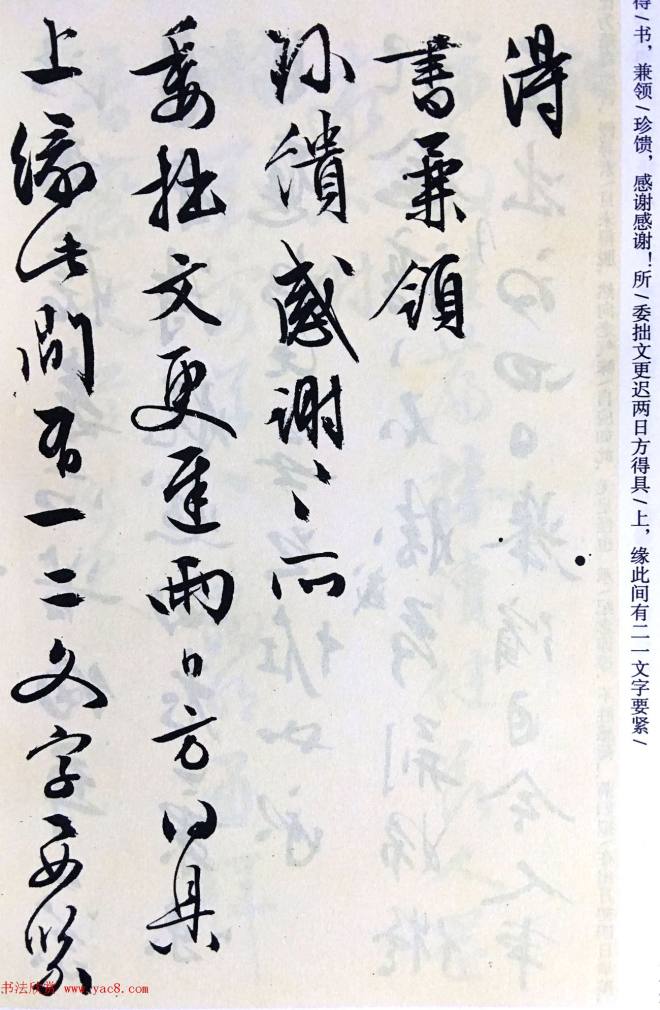 得
書兼領
珎饋感謝〻所
委拙文更遲兩日方得具
上緣此間有一二文字要緊
得/书，兼领/珍馈，感谢感谢！所/委拙文更迟两日方得具/上，缘此间有二一文字要紧/
书法欣赏 www.yac8.com